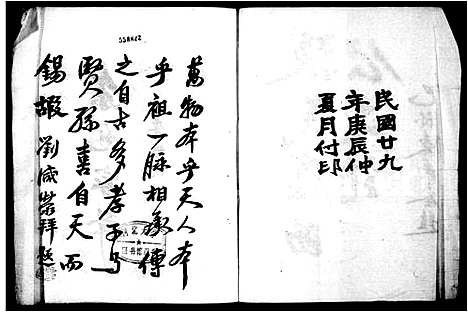 民國廿九
年庚辰仲
夏月付印
萬物本乎天人本
乎祖一脉相承傳
之自古多孝子與
賢孫喜自天而
錫嘏 劉咸榮拜題